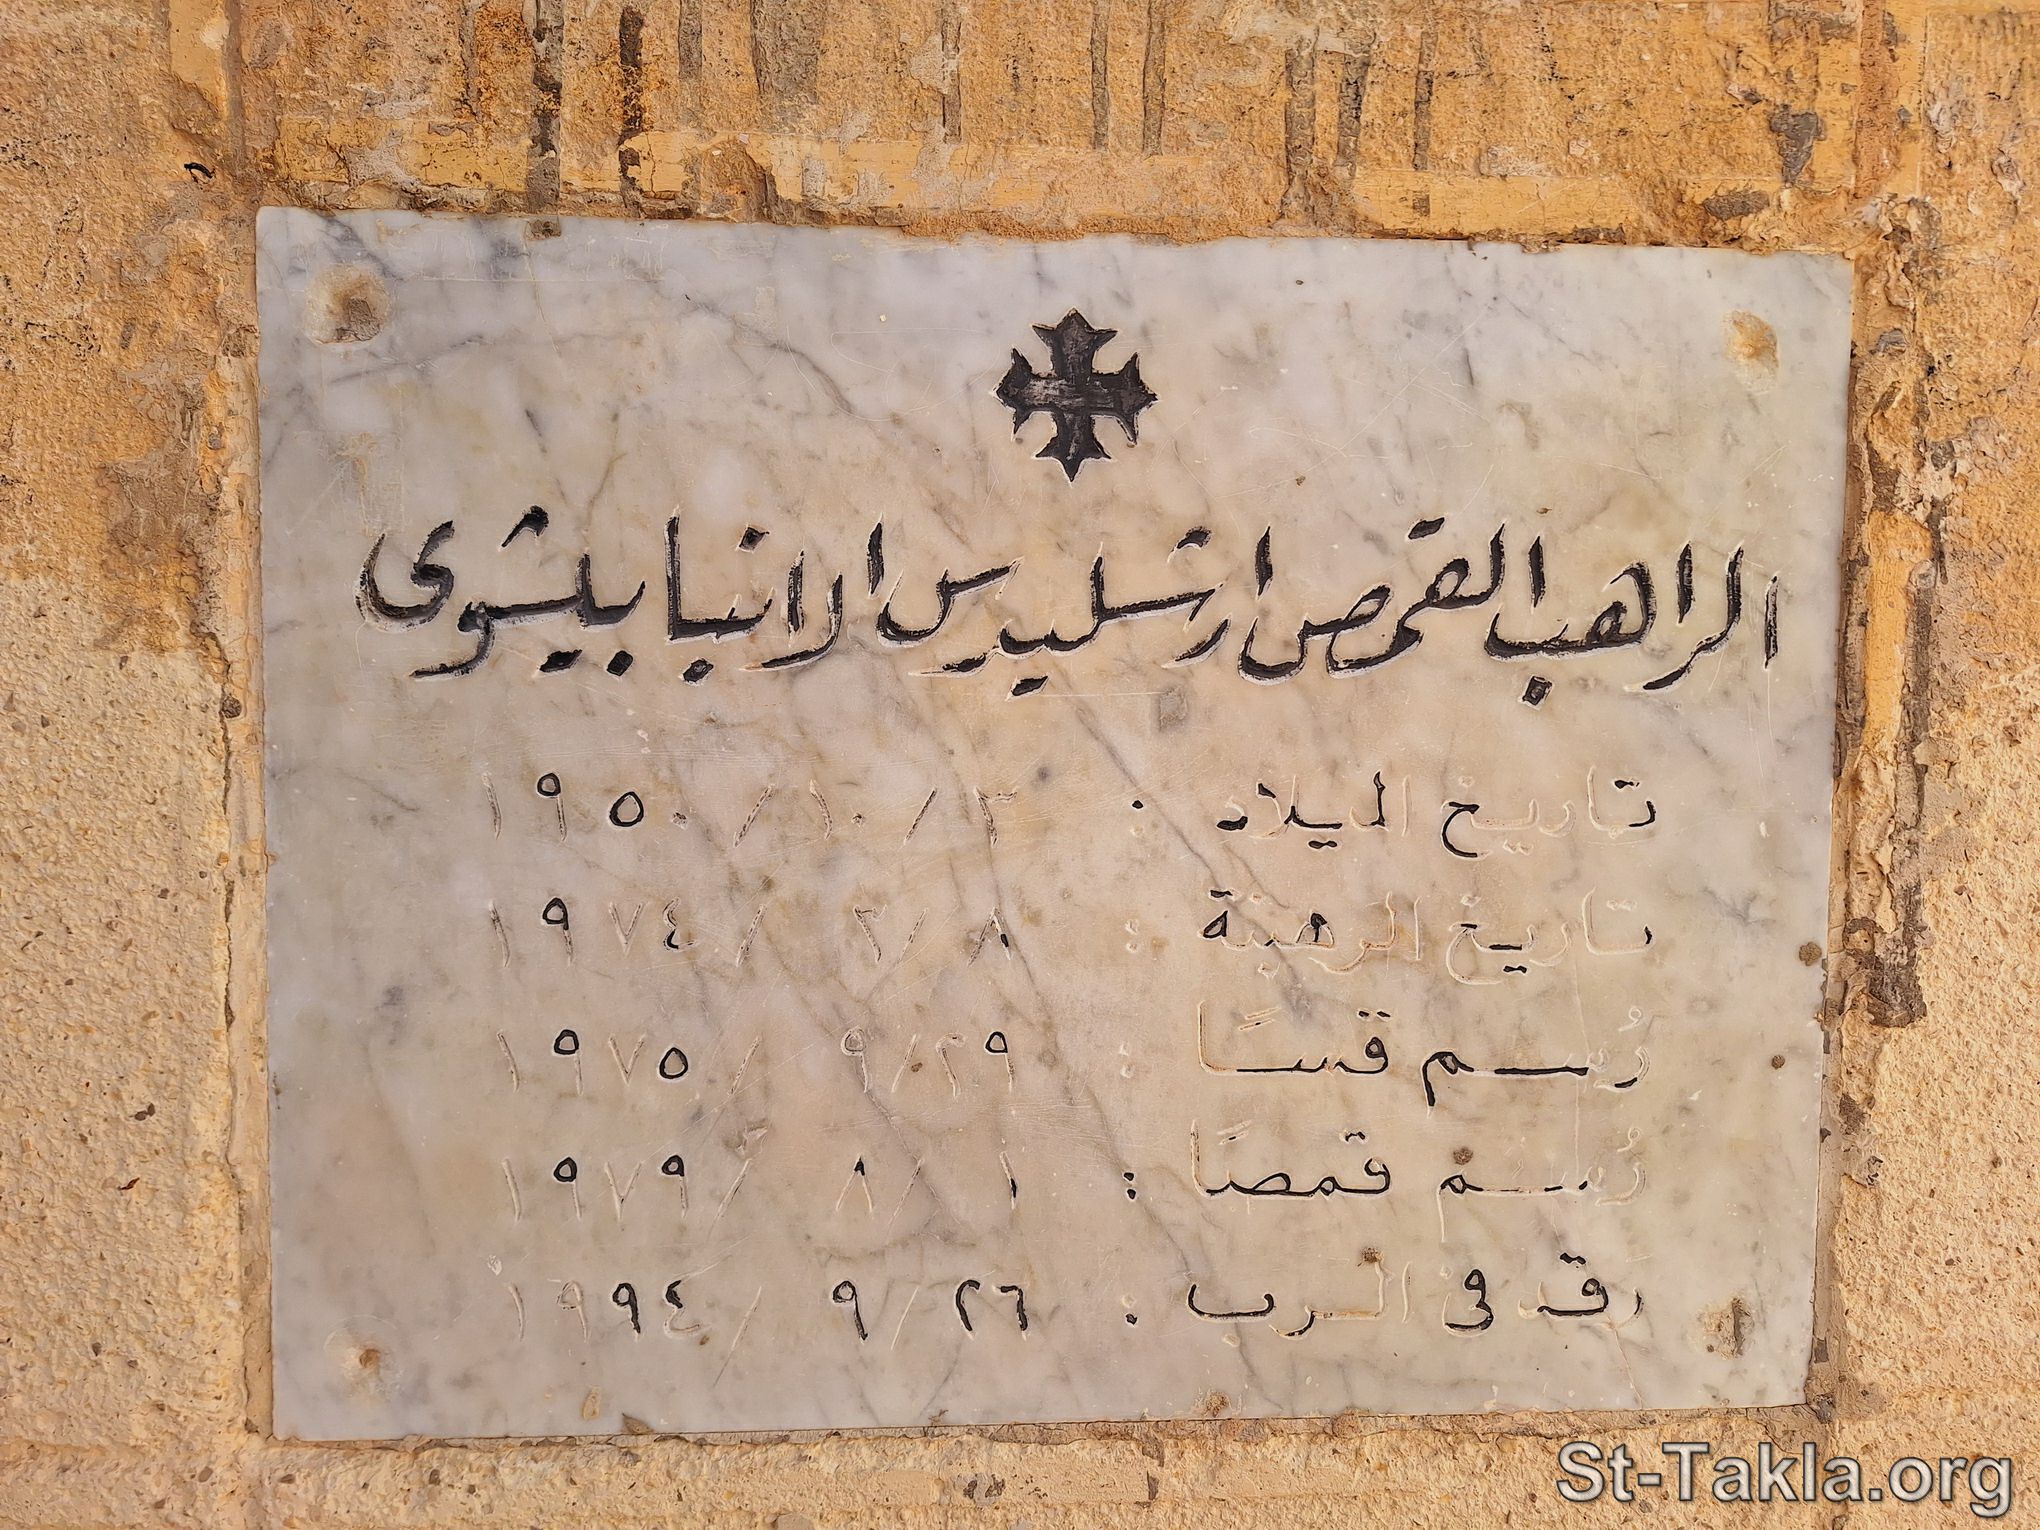 الراهب القمص ارشليدس الانبا بيشوى
تاريخ الميلاد : ٣ / ١٠ / ١٩٥٠
تاريخ الرهبنة : ٨ / ٣ / ١٩٧٤
رُسم قسًا : ٢٩ / ٩ / ١٩٧٥
رُسم قمصًا : ١ / ٨ / ١٩٧٩
رقد فى الرب : ٢٦ / ٩ / ١٩٩٤
St-Takla.org